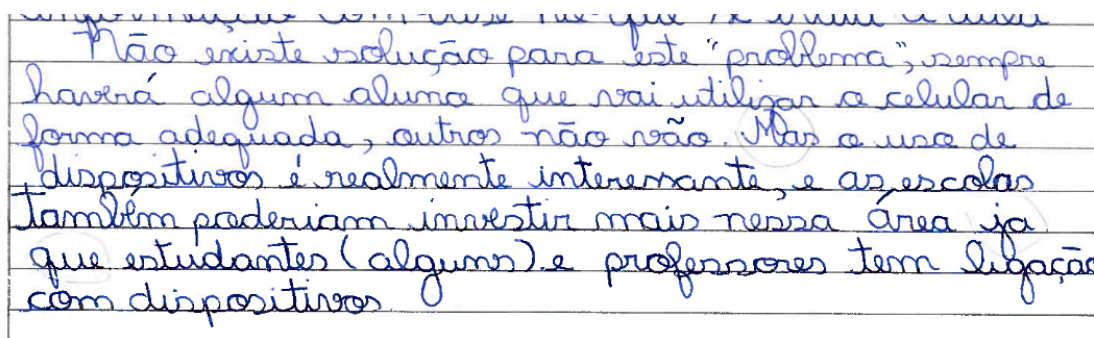 Não existe solução para este "problema", sempre
haverá algum aluno que vai utilizar o celular de
forma adequada, outros não vão. Mas o uso de
dispositivos é realmente interessante, e as escolas
também poderiam investir mais nessa área ja
que estudantes (alguns) e professores tem ligação
com dispositivos.